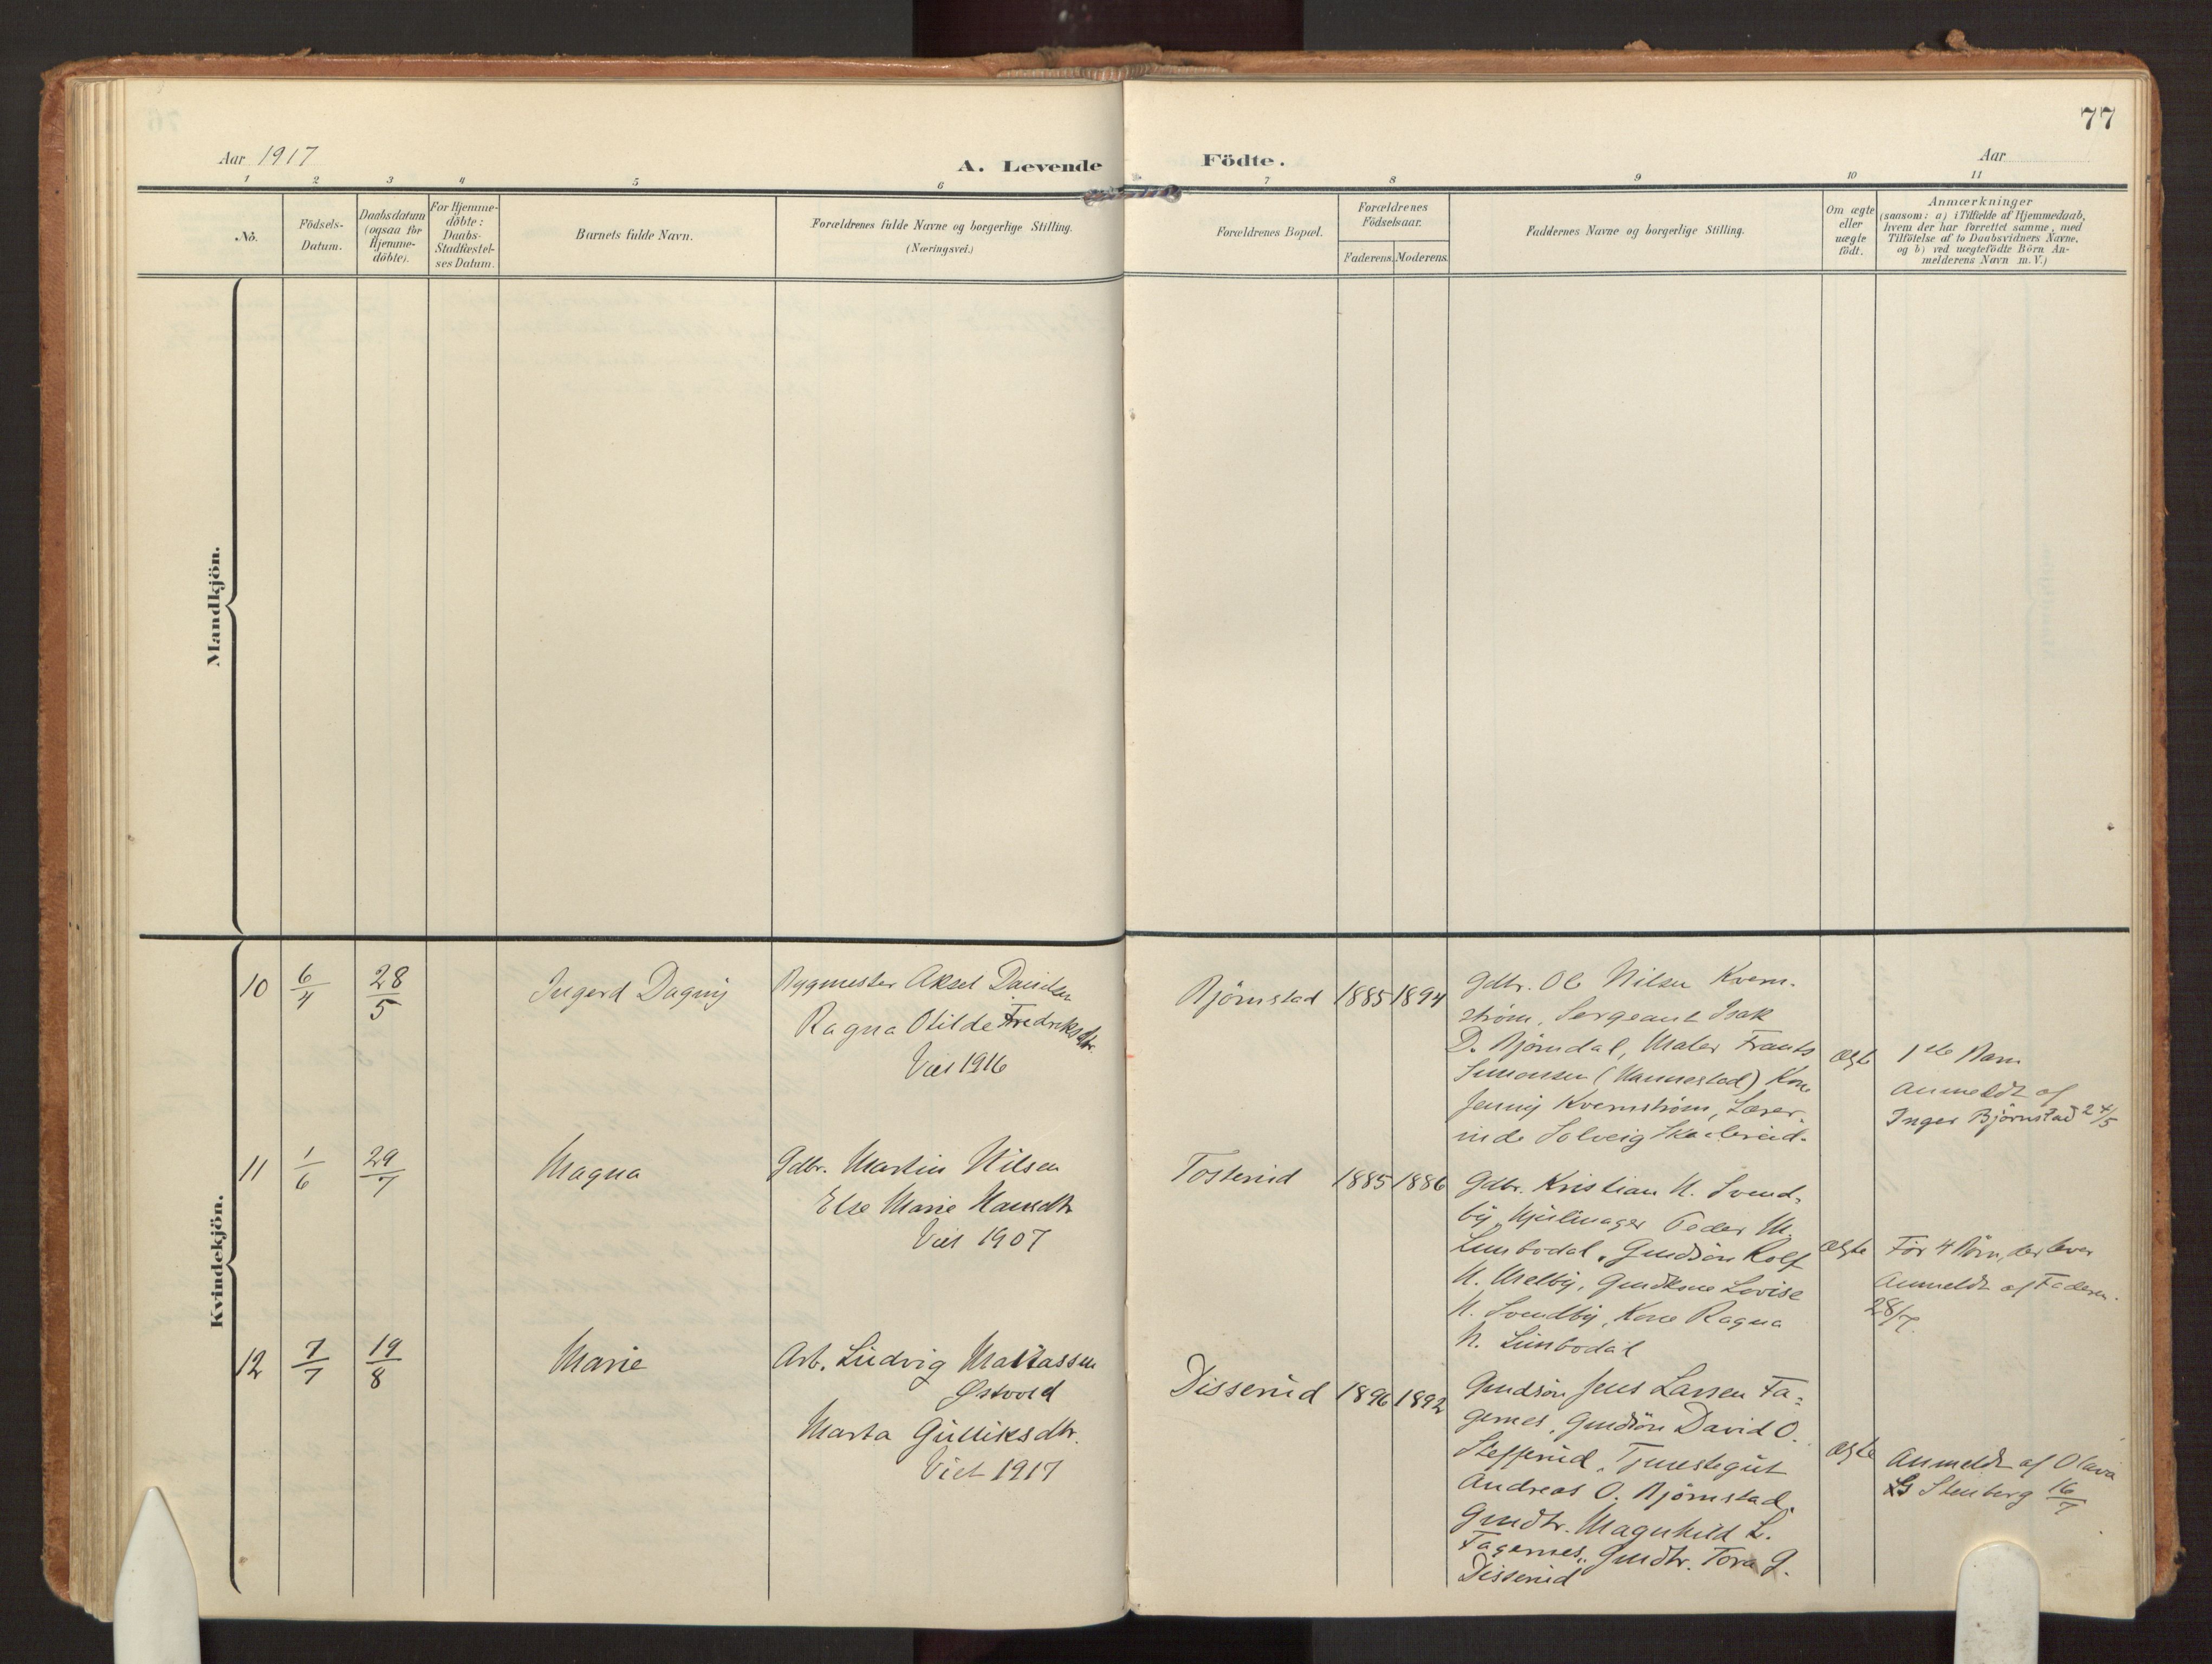 77
Aar 1917
A. Levende Födte.
Aar
1 2 3 4 5 6 7 8 9 10 11
Nô.
Födsels-
Datum.
Daabsdatum
(ogsaa for
Hjemme-
döbte).
For Hjemme-
döbte:
Daabs-
Stadfæstel-
ses Datum.
Barnets fulde Navn.
Forældrenes fulde Navne og borgerlige Stilling.
(Næringsvei.)
Forældrenes Bopæl.
Forældrenes
Födselsaar.
Faderens. Moderens.
Faddernes Navne og borgerlige Stilling.
Om ægte
eller
uægte
födt.
Anmærkninger
(saasom: a) i Tilfælde af Hjemmedaab,
hvem der har forrettet samme, med
Tilföielse af to Daabsvidners Navne,
og b) ved uægtefödte Börn An-
melderens Navn m. V.)
Mandkjön.
Kvindekjön.
10 6/4 28/5 Ingerd Dagny
Bygmester Aksel Davidsen
Ragna Otilde Fredriksdtr.
Viet 1916
Björnstad 1885 1894
Gdbr. Ole Nilsen Kvern-
ström, Sergeant Isak
D. Björndal, Maler Frants
Simonsen (Hannestad) Kone
Jenny Kvernström, Lærer-
inde Solveig
ægte
1ste Barn
Anmeldt af
Inger Björnstad 24/5
11 1/6 29/7 Magna
Gdbr. Martin Nilsen
Else Marie Hansdtr
Viet 1907
Tosterud 1885 1886
Gdbr. Kristian N. Svend-
by, Hjulmager Peder M.
Limbodal, Gmdsön Rolf
N. Melby, Gmdkone Lovise
N. Svendby, Kone Ragna
N. Limbodal
ægte
För 4 Börn, der lever
Anmeldt af Faderen.
28/7.
12 7/7 19/8 Marie
Arb. Ludvig Matiassen
Østvold
Marta Gulliksdtr.
Viet 1917
Disserud 1896 1892
Gmdsön Jens Larsen Fa-
gernes, Gmdsön David O.
Stefferud, Tjenestegut
Andreas O. Björnstad,
Gmdtr. Magnhild L.
Fagernes, Gmdtr. Tora G.
Disserud
ægte
Anmeldt af Olava
Stenberg 16/7